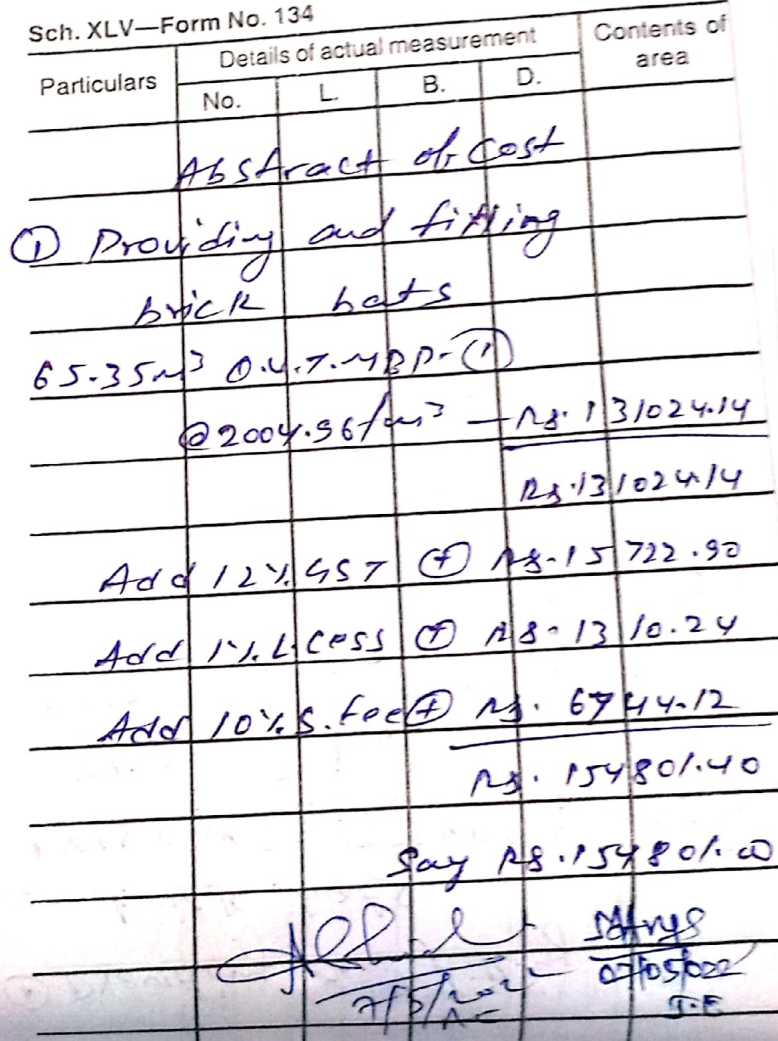 Sch. XLV—Form No. 134
Particulars Details of actual measurement Contents of area
No. L. B. D.
Abstract of Cost
① Providing and fitting
brick bats
65.35m³ O.V.T.MBP-①
@2004.96/m³ — Rs. 131024.14
Rs. 131024.14
Add 12% GST ⊕ Rs. 15722.90
Add 1% L. Cess ⊕ Rs. 1310.24
Add 10% S. fee ⊕ Rs. 6744.12
Rs. 154801.40
Say Rs. 154801.00
7/5/2022
07/05/022
J.E